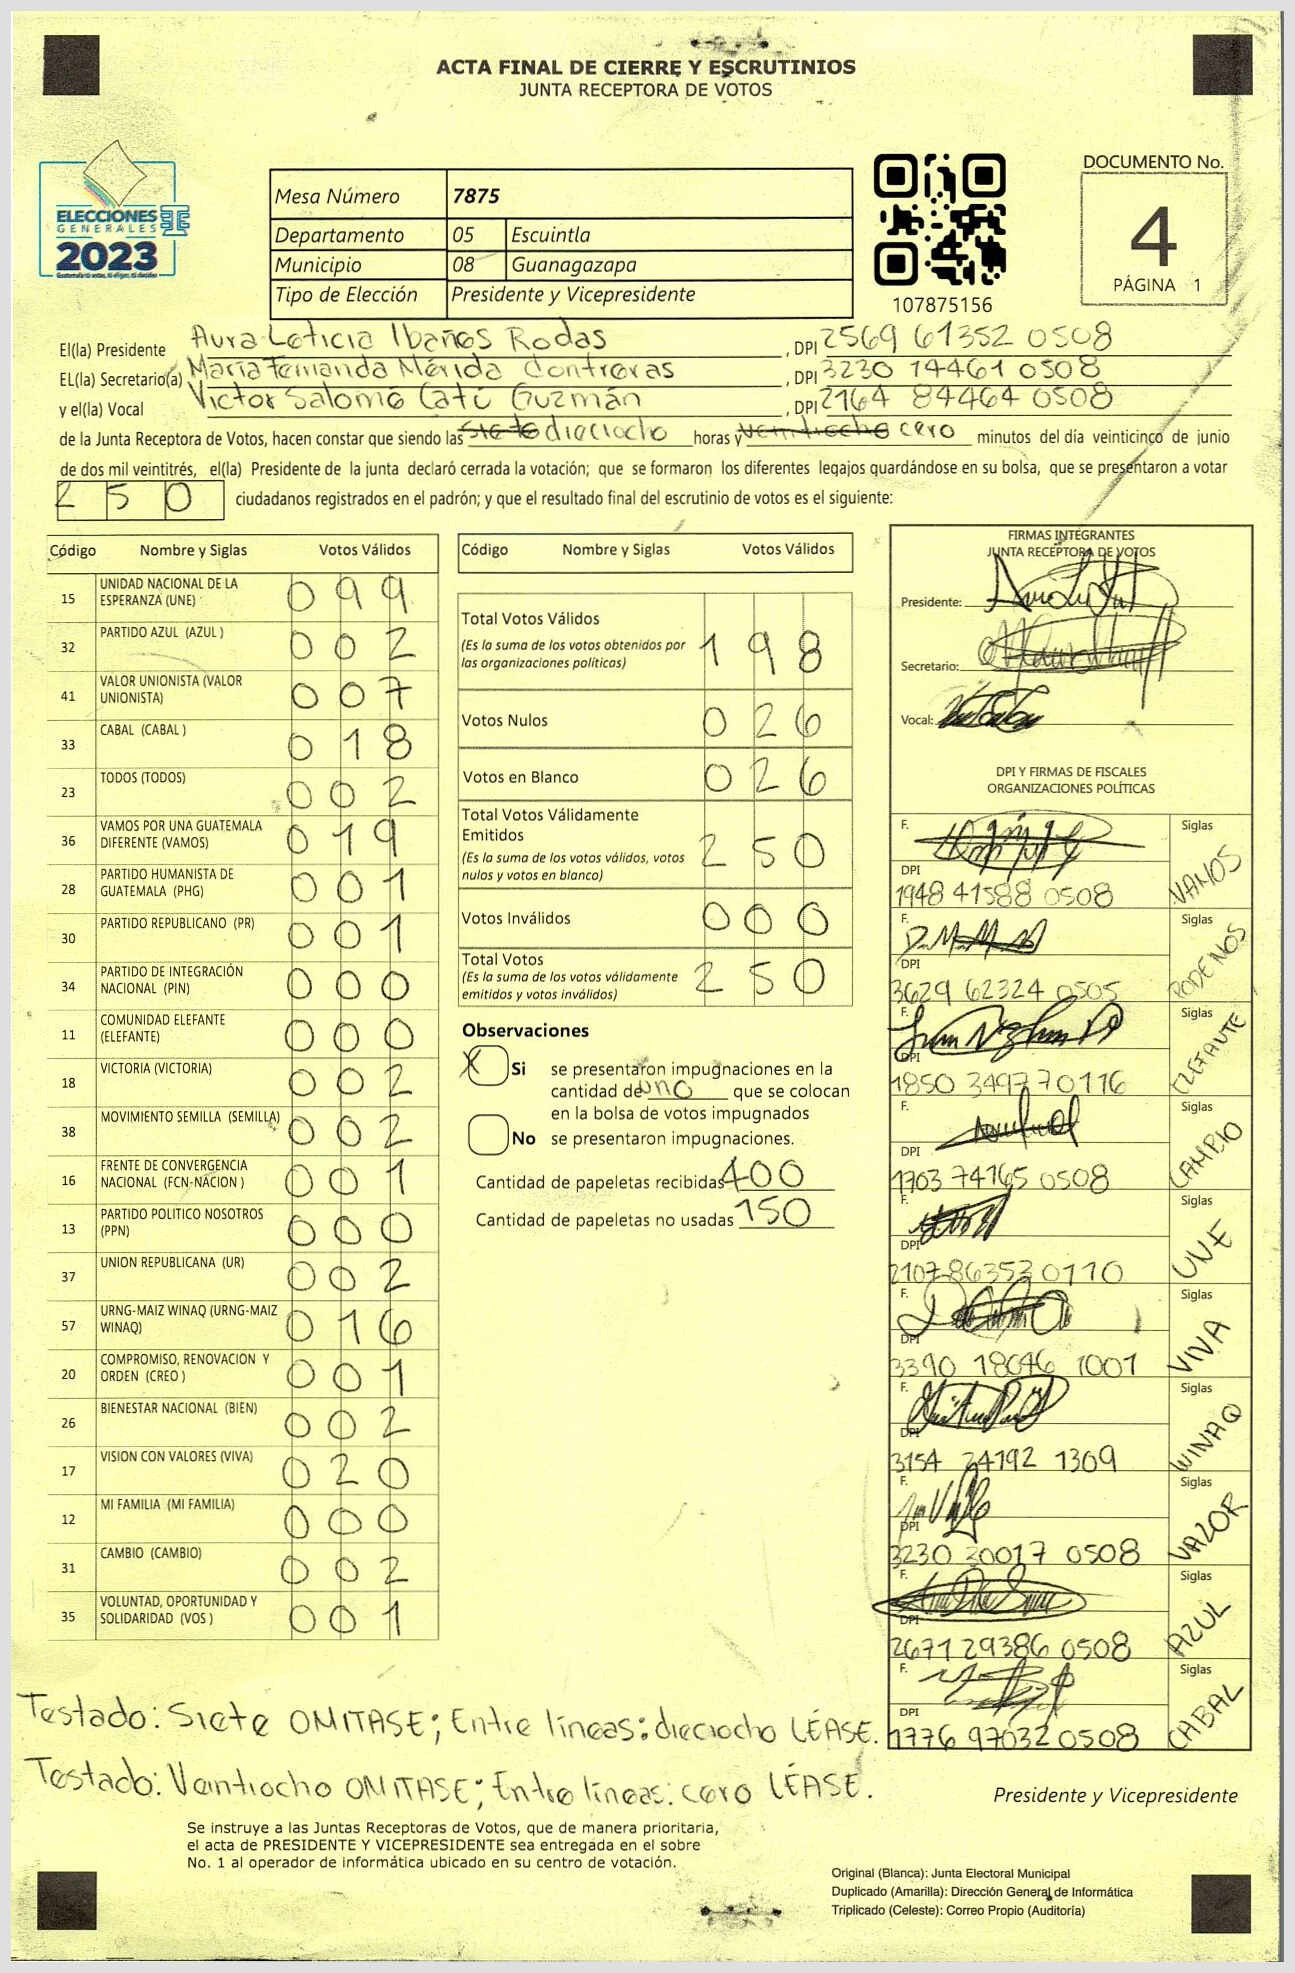 ACTA FINAL DE CIERRE Y ESCRUTINIOS
JUNTA RECEPTORA DE VOTOS
ELECCIONES
GENERALES
2023
Mesa Número 7875
Departamento 05 Escuintla
Municipio 08 Guanagazapa
Tipo de Elección Presidente y Vicepresidente
107875156
DOCUMENTO No.
4
PÁGINA 1
El(la) Presidente Aura Leticia Ibañes Rodas , DPI 2569 61352 0508
EL(la) Secretario(a) María Fernanda Mérida Contreras , DPI 3230 14461 0508
y el(la) Vocal Victor Salomé Catú Guzmán , DPI 2164 84464 0508
de la Junta Receptora de Votos, hacen constar que siendo las siete dieciocho horas y veintiocho cero minutos del día veinticinco de junio
de dos mil veintitrés, el(la) Presidente de la junta declaró cerrada la votación; que se formaron los diferentes legajos guardándose en su bolsa, que se presentaron a votar
250 ciudadanos registrados en el padrón; y que el resultado final del escrutinio de votos es el siguiente:
Código Nombre y Siglas Votos Válidos
15 UNIDAD NACIONAL DE LA ESPERANZA (UNE) 099
32 PARTIDO AZUL (AZUL ) 002
41 VALOR UNIONISTA (VALOR UNIONISTA) 007
33 CABAL (CABAL ) 018
23 TODOS (TODOS) 002
36 VAMOS POR UNA GUATEMALA DIFERENTE (VAMOS) 019
28 PARTIDO HUMANISTA DE GUATEMALA (PHG) 001
30 PARTIDO REPUBLICANO (PR) 001
34 PARTIDO DE INTEGRACIÓN NACIONAL (PIN) 000
11 COMUNIDAD ELEFANTE (ELEFANTE) 000
18 VICTORIA (VICTORIA) 002
38 MOVIMIENTO SEMILLA (SEMILLA) 002
16 FRENTE DE CONVERGENCIA NACIONAL (FCN-NACION ) 001
13 PARTIDO POLITICO NOSOTROS (PPN) 000
37 UNION REPUBLICANA (UR) 002
57 URNG-MAIZ WINAQ (URNG-MAIZ WINAQ) 016
20 COMPROMISO, RENOVACION Y ORDEN (CREO ) 001
26 BIENESTAR NACIONAL (BIEN) 002
17 VISION CON VALORES (VIVA) 020
12 MI FAMILIA (MI FAMILIA) 000
31 CAMBIO (CAMBIO) 002
35 VOLUNTAD, OPORTUNIDAD Y SOLIDARIDAD (VOS ) 001
Código Nombre y Siglas Votos Válidos
Total Votos Válidos 198
(Es la suma de los votos obtenidos por
las organizaciones políticas)
Votos Nulos 026
Votos en Blanco 026
Total Votos Válidamente
Emitidos 250
(Es la suma de los votos válidos, votos
nulos y votos en blanco)
Votos Inválidos 000
Total Votos 250
(Es la suma de los votos válidamente
emitidos y votos inválidos)
Observaciones
X Si se presentaron impugnaciones en la
cantidad de uno que se colocan
en la bolsa de votos impugnados
No se presentaron impugnaciones.
Cantidad de papeletas recibidas 400
Cantidad de papeletas no usadas 150
FIRMAS INTEGRANTES
JUNTA RECEPTORA DE VOTOS
Presidente:
Secretario:
Vocal:
DPI Y FIRMAS DE FISCALES
ORGANIZACIONES POLÍTICAS
F. Siglas
DPI 1948 41588 0508 VAMOS
F. Siglas
DPI 3629 62324 0505 PODEMOS
F. Siglas
DPI 1850 34977 0116 ELEFANTE
F. Siglas
DPI 1703 74765 0508 CAMBIO
F. Siglas
DPI 2107 86353 0110 UNE
F. Siglas
DPI 3390 18046 1001 VIVA
F. Siglas
DPI 3154 24192 1309 WINAQ
F. Siglas
DPI 3230 30017 0508 VALOR
F. Siglas
DPI 2671 29386 0508 AZUL
F. Siglas
DPI 1776 97032 0508 CABAL
Testado: Siete OMITASE; Entre líneas: dieciocho LÉASE.
Testado: Veintiocho OMITASE; Entre líneas: cero LÉASE.
Presidente y Vicepresidente
Se instruye a las Juntas Receptoras de Votos, que de manera prioritaria,
el acta de PRESIDENTE Y VICEPRESIDENTE sea entregada en el sobre
No. 1 al operador de informática ubicado en su centro de votación.
Original (Blanca): Junta Electoral Municipal
Duplicado (Amarilla): Dirección General de Informática
Triplicado (Celeste): Correo Propio (Auditoría)